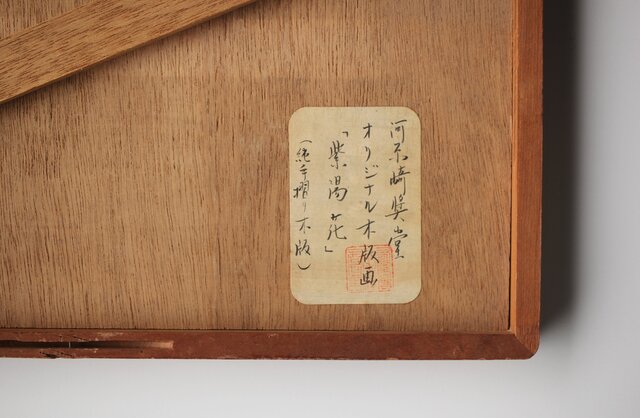 河原崎奨堂
オリジナル木版画
「紫陽花」
(純手摺り木版)